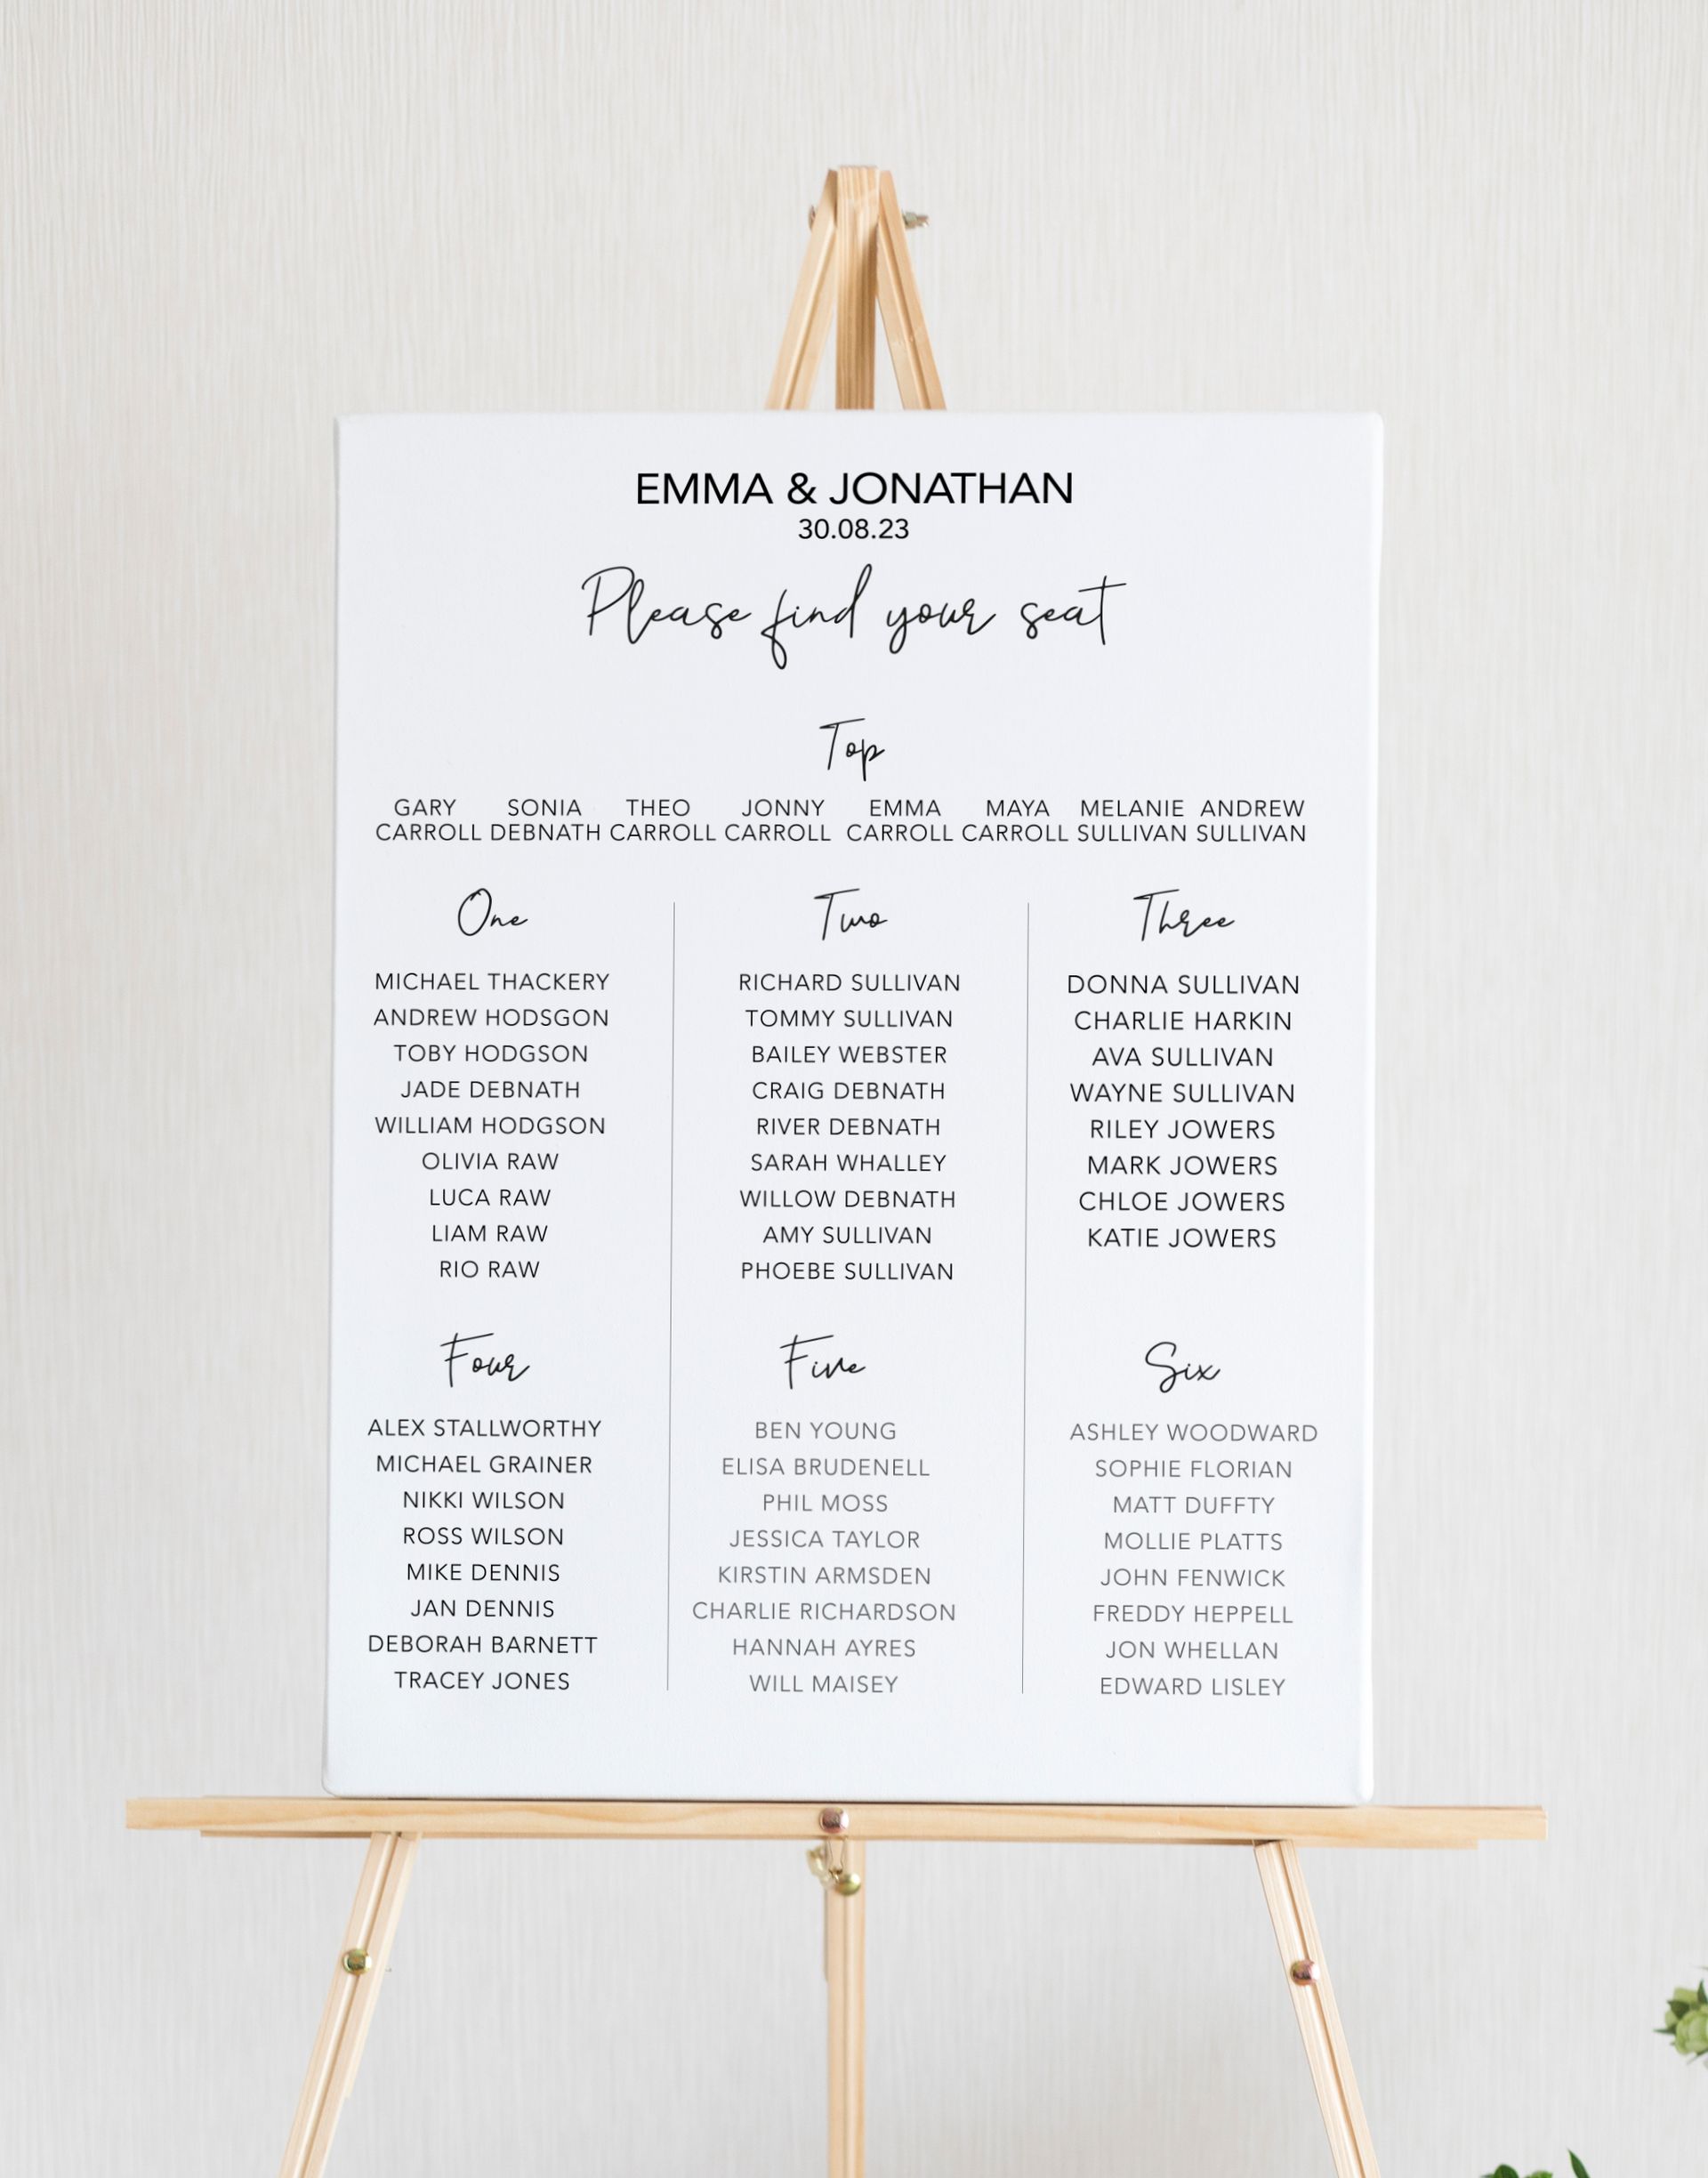 EMMA & JONATHAN
30.08.23
Please find your seat
Top
GARY SONIA THEO JONNY EMMA MAYA MELANIE ANDREW
CARROLL DEBNATH CARROLL CARROLL CARROLL CARROLL SULLIVAN SULLIVAN
One
MICHAEL THACKERY
ANDREW HODSGON
TOBY HODGSON
JADE DEBNATH
WILLIAM HODGSON
OLIVIA RAW
LUCA RAW
LIAM RAW
RIO RAW
Two
RICHARD SULLIVAN
TOMMY SULLIVAN
BAILEY WEBSTER
CRAIG DEBNATH
RIVER DEBNATH
SARAH WHALLEY
WILLOW DEBNATH
AMY SULLIVAN
PHOEBE SULLIVAN
Three
DONNA SULLIVAN
CHARLIE HARKIN
AVA SULLIVAN
WAYNE SULLIVAN
RILEY JOWERS
MARK JOWERS
CHLOE JOWERS
KATIE JOWERS
Four
ALEX STALLWORTHY
MICHAEL GRAINER
NIKKI WILSON
ROSS WILSON
MIKE DENNIS
JAN DENNIS
DEBORAH BARNETT
TRACEY JONES
Five
BEN YOUNG
ELISA BRUDENELL
PHIL MOSS
JESSICA TAYLOR
KIRSTIN ARMSDEN
CHARLIE RICHARDSON
HANNAH AYRES
WILL MAISEY
Six
ASHLEY WOODWARD
SOPHIE FLORIAN
MATT DUFFTY
MOLLIE PLATTS
JOHN FENWICK
FREDDY HEPPELL
JON WHELLAN
EDWARD LISLEY